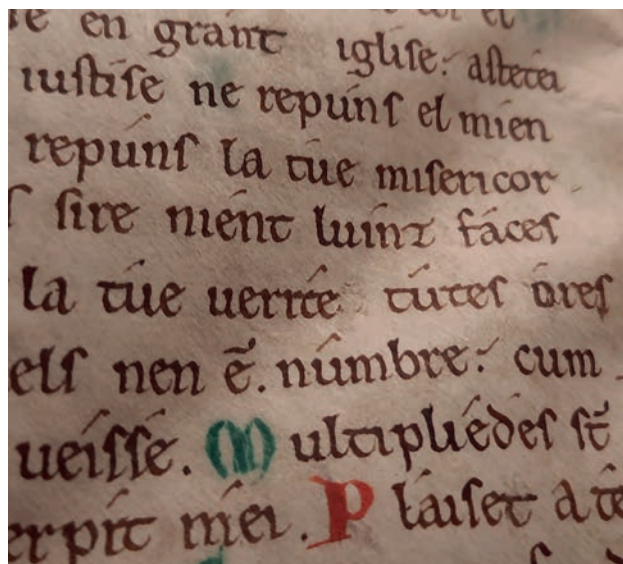 en grant iglise: astetei
iustise ne repúns el mien
repúns la túe misericor-
sire nient luinz fáces
la túe uerité tútes óres
els nen ē. númbre: cum
ueísse. Multipliédes st̄
erpít méi. Pláiset a té